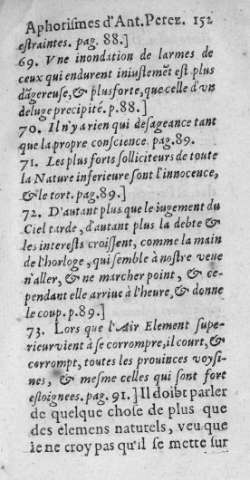 Aphorismes d'Ant. Perez. 152
estraintes. pag. 88.]
69. Vne inondation de larmes de
ceux qui endurent iniustemēt est plus
dāgereuse, & plus forte, que celle d'vn
deluge precipité. p. 88.]
70. Il n'y a rien qui desageance tant
que la propre conscience. pag. 89.
71. Les plus forts solliciteurs de toute
la Nature inferieure sont l'innocence,
& le tort. pag. 89.]
72. D'autant plus que le iugement du
Ciel tarde, d'autant plus la debte &
les interests croissent, comme la main
de l'horloge, qui semble à nostre veuë
n'aller, & ne marcher point, & ce-
pendant elle arriue à l'heure, & donne
le coup. p. 89.]
73. Lors que l'Air Element supe-
rieur vient à se corrompre, il court, &
corrompt, toutes les prouinces voysi-
nes, & mesme celles qui sont fort
esloignees. pag. 91.] Il doibt parler
de quelque chose de plus que
des elemens naturels, veu que
ie ne croy pas qu'il se mette sur